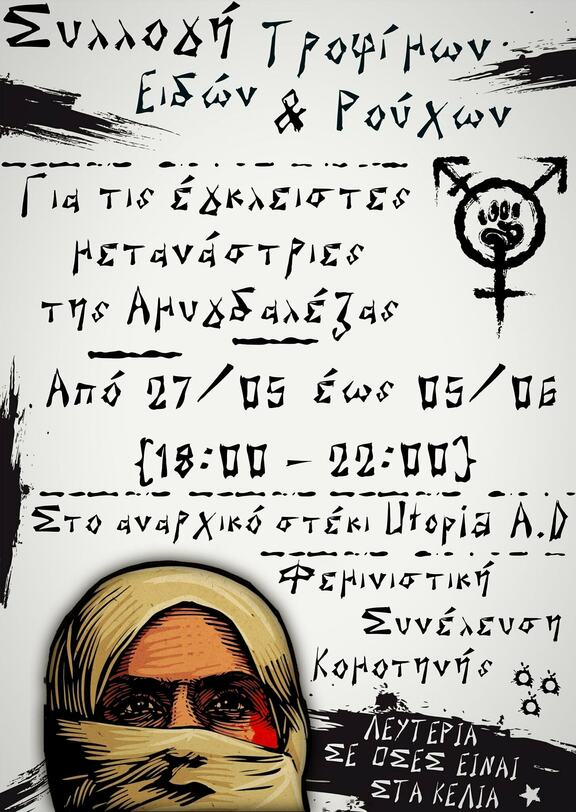 Συλλογή Τροφίμων
Ειδών & Ρούχων
Για τις έγκλειστες
μετανάστριες
της Αμυγδαλέζας
Από 27/05 έως 05/06
{18:00 - 22:00}
Στο αναρχικό στέκι Utopia A.D
Φεμινιστική
Συνέλευση
Κομοτηνής
ΛΕΥΤΕΡΙΑ
ΣΕ ΟΣΕΣ ΕΙΝΑΙ
ΣΤΑ ΚΕΛΙΑ